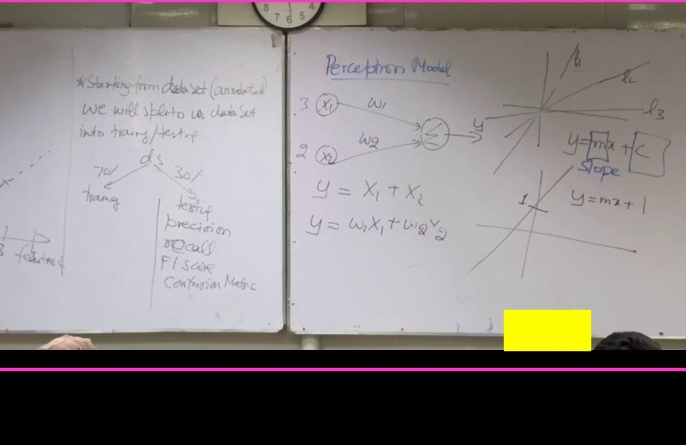 8 7 6 5 4
*Starting from data set (annotated)
we will split our data set
into training/testing
ds
70%
30%
training
testing
precision
recall
F1 score
Confusion Matrix
Perceptron Model
3 x1 w1
Σ y
2 x2 w2
y = x1 + x2
y = w1x1 + w2x2
l1
l2
l3
y=mx+c
slope
1
y=mx+1